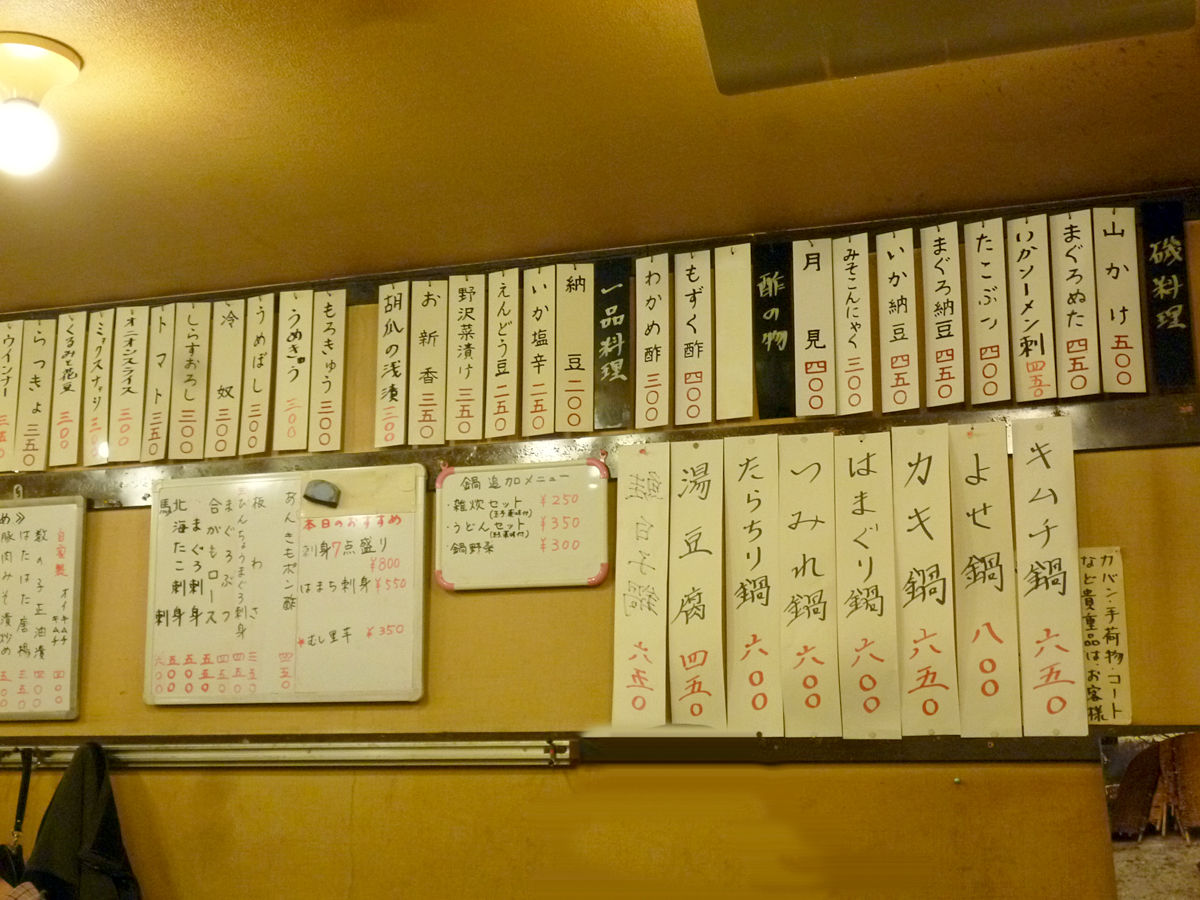 磯料理
山かけ 五〇〇
まぐろぬた 四五〇
いかソーメン刺 四五〇
たこぶつ 四〇〇
まぐろ納豆 四五〇
いか納豆 四五〇
みそこんにゃく 三〇〇
月見 四〇〇
酢の物
もずく酢 四〇〇
わかめ酢 三〇〇
一品料理
納豆 二〇〇
いか塩辛 二五〇
えんどう豆 二五〇
野沢菜漬け 三五〇
お新香 三五〇
胡瓜の浅漬 三〇〇
もろきゅう 三〇〇
うめきゅう 三〇〇
うめぼし 三〇〇
冷奴 三〇〇
しらすおろし 三〇〇
トマト 三五〇
オニオンスライス 三〇〇
ミックスナッツ 三〇〇
くるみと花豆 三〇〇
らっきょ 三五〇
ウインナー
キムチ鍋 六五〇
よせ鍋 八〇〇
カキ鍋 六五〇
はまぐり鍋 六〇〇
つみれ鍋 六〇〇
たらちり鍋 六〇〇
湯豆腐 四五〇
六五〇
カバン・手荷物・コート
など貴重品は、お客様
鍋追加メニュー
・雑炊セット ¥250
・うどんセット ¥350
・鍋野菜 ¥300
本日のおすすめ
刺身7点盛り
¥800
はまち刺身 ¥550
むし里芋 ¥350
あんきもポン酢 四五〇
板わさ 三五〇
びんちょうまぐろ刺身 四五〇
まぐろぶつ 四五〇
合がもロース 五五〇
まぐろ刺身 五〇〇
北海たこ刺身 五〇〇
馬刺 六〇〇
自家製 オイキムチ 四〇〇
数の子正油漬 四〇〇
はたはた唐揚 三五〇
豚肉みそ漬炒め 五五〇